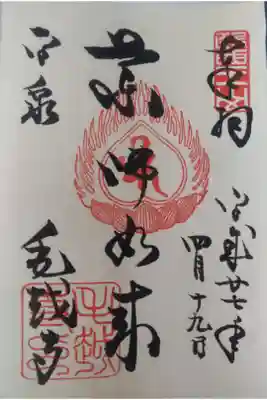 奉拝
平成廿七年
四月十九日
薬師如来
平泉
毛越寺